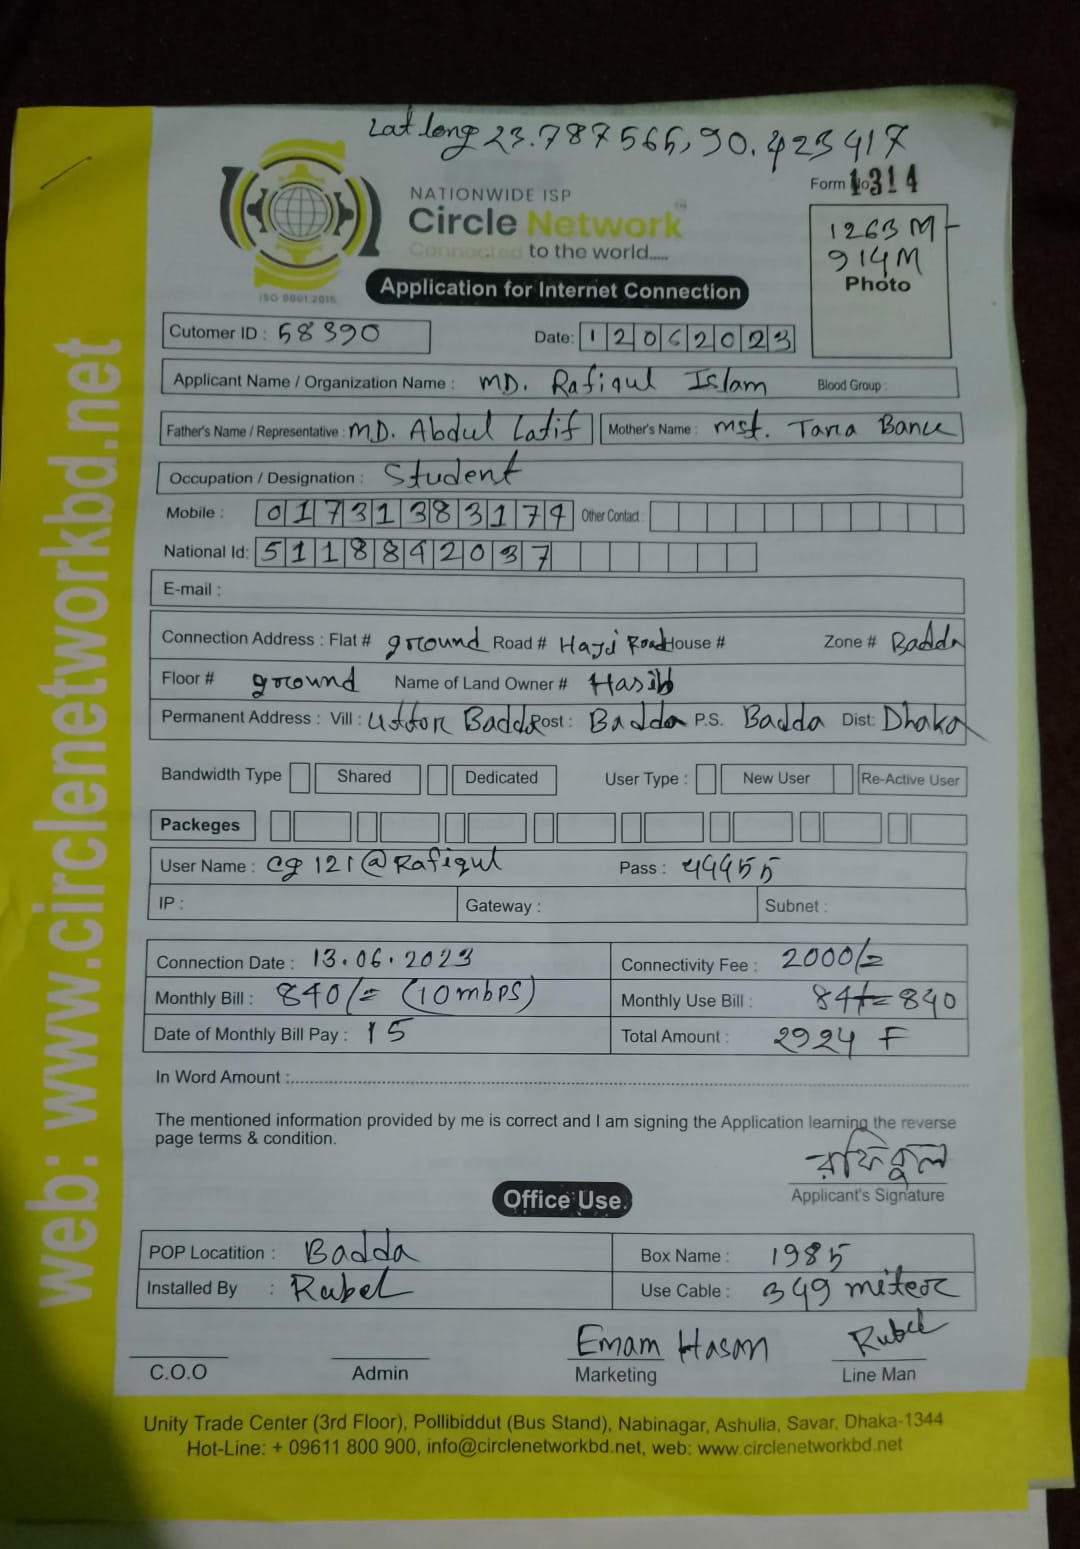 Lat long 23.787565, 90.423417
Form No 1314
NATIONWIDE ISP
Circle Network™
Connected to the world.....
ISO 9001:2015
1263 M-
914 M
Photo
Application for Internet Connection
Cutomer ID : 58390 Date: 12062023
Applicant Name / Organization Name : MD. Rafiqul Islam Blood Group :
Father's Name / Representative : MD. Abdul Latif Mother's Name : Mst. Tara Banu
Occupation / Designation : Student
Mobile : 01731383174 Other Contact :
National Id: 5118842037
E-mail :
Connection Address : Flat # ground Road # Haji Road House # Zone # Badda
Floor # ground Name of Land Owner # Hasib
Permanent Address : Vill : Uttor Badda Post : Badda P.S. Badda Dist: Dhaka
Bandwidth Type Shared Dedicated User Type : New User Re-Active User
Packeges
User Name : cg 121@Rafiqul Pass :
IP : Gateway : Subnet :
Connection Date : 13.06.2023 Connectivity Fee : 2000/=
Monthly Bill : 840/= (10mbps) Monthly Use Bill : 840
Date of Monthly Bill Pay : 15 Total Amount :
In Word Amount :
The mentioned information provided by me is correct and I am signing the Application learning the reverse
page terms & condition.
রফিকুল
Applicant's Signature
Office Use
POP Locatition : Badda Box Name : 1985
Installed By : Rubel Use Cable : 349 miter
Emam Hasan Rubel
C.O.O Admin Marketing Line Man
Unity Trade Center (3rd Floor), Pollibiddut (Bus Stand), Nabinagar, Ashulia, Savar, Dhaka-1344
Hot-Line: + 09611 800 900, info@circlenetworkbd.net, web: www.circlenetworkbd.net
web: www.circlenetworkbd.net